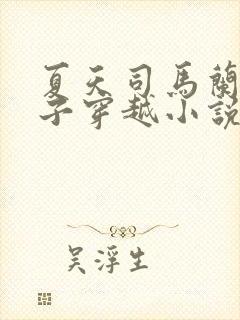 夏天司馬蘭
子穿越小說
吳浮生